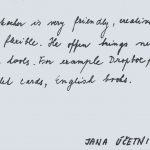 is very friendly, creative
flexible. He often brings ne
tools. For example Dropbox,
cards, English books.
JANA UČETNI